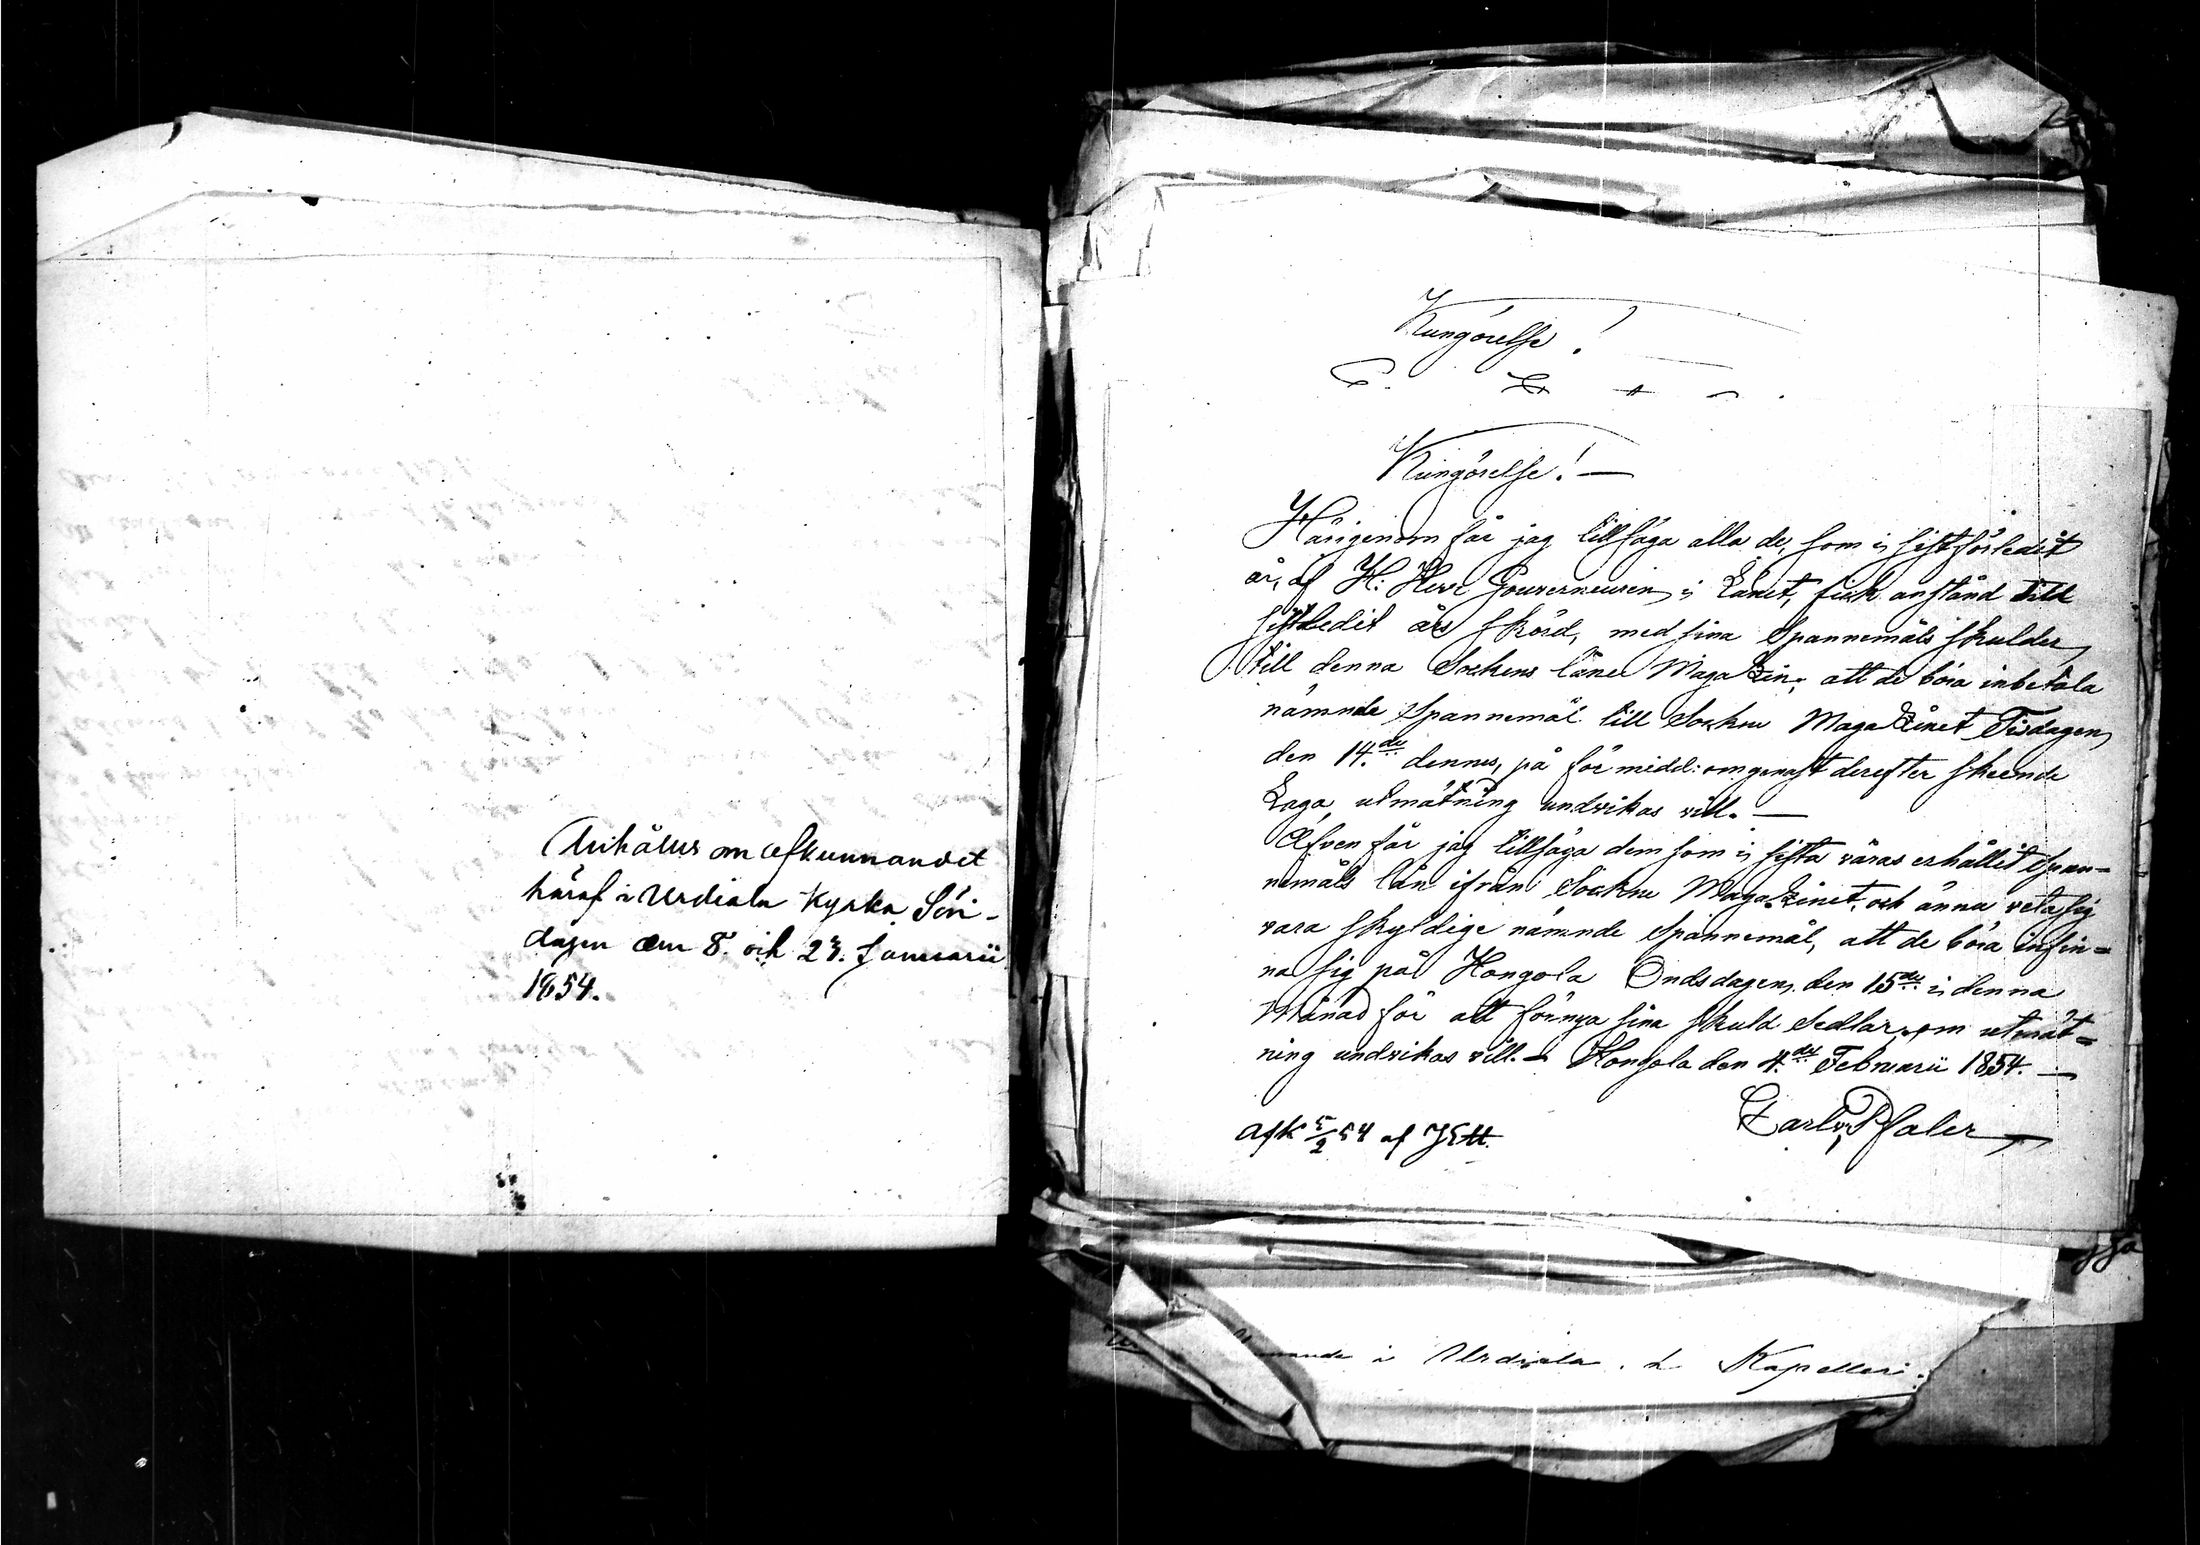 Anhålles om afkunnandet
häraf i Urdiala Kyrka Sön-
dagen den 8. och 23. Januarii
1854.
Kungörelse!
Kungörelse! —
Härigenom får jag tillsäga alla de, som i sistförledit
år, af H: Herr Gouverneuren i Länet, fick anstånd till
sistledit års skörd, med sina Spannemåls skulder
till denna Sockens låne Magazin; att de böra inbetala
nämnde Spannemål till Sockne Magazinet Tisdagen
den 14.de dennes, på för midd: om genast derefter skeende
Laga utmätning undvikas vill. —
Äfven får jag tillsäga dem som i sista våras erhållit Span=
nemåls lån ifrån Sockne Magazinet, och ännu veta sig
vara skyldige nämnde Spannemål, att de böra infin=
na sig på Hongola Ondsdagen den 15de i denna
Månad för att förnya sina skuld Sedlar, om utmät=
ning undvikas vill. — Hongola den 4.de Februarii 1854. —
Carl v. Pfaler
Afk 5/2 54 af
i Urdiala Kapelleri.